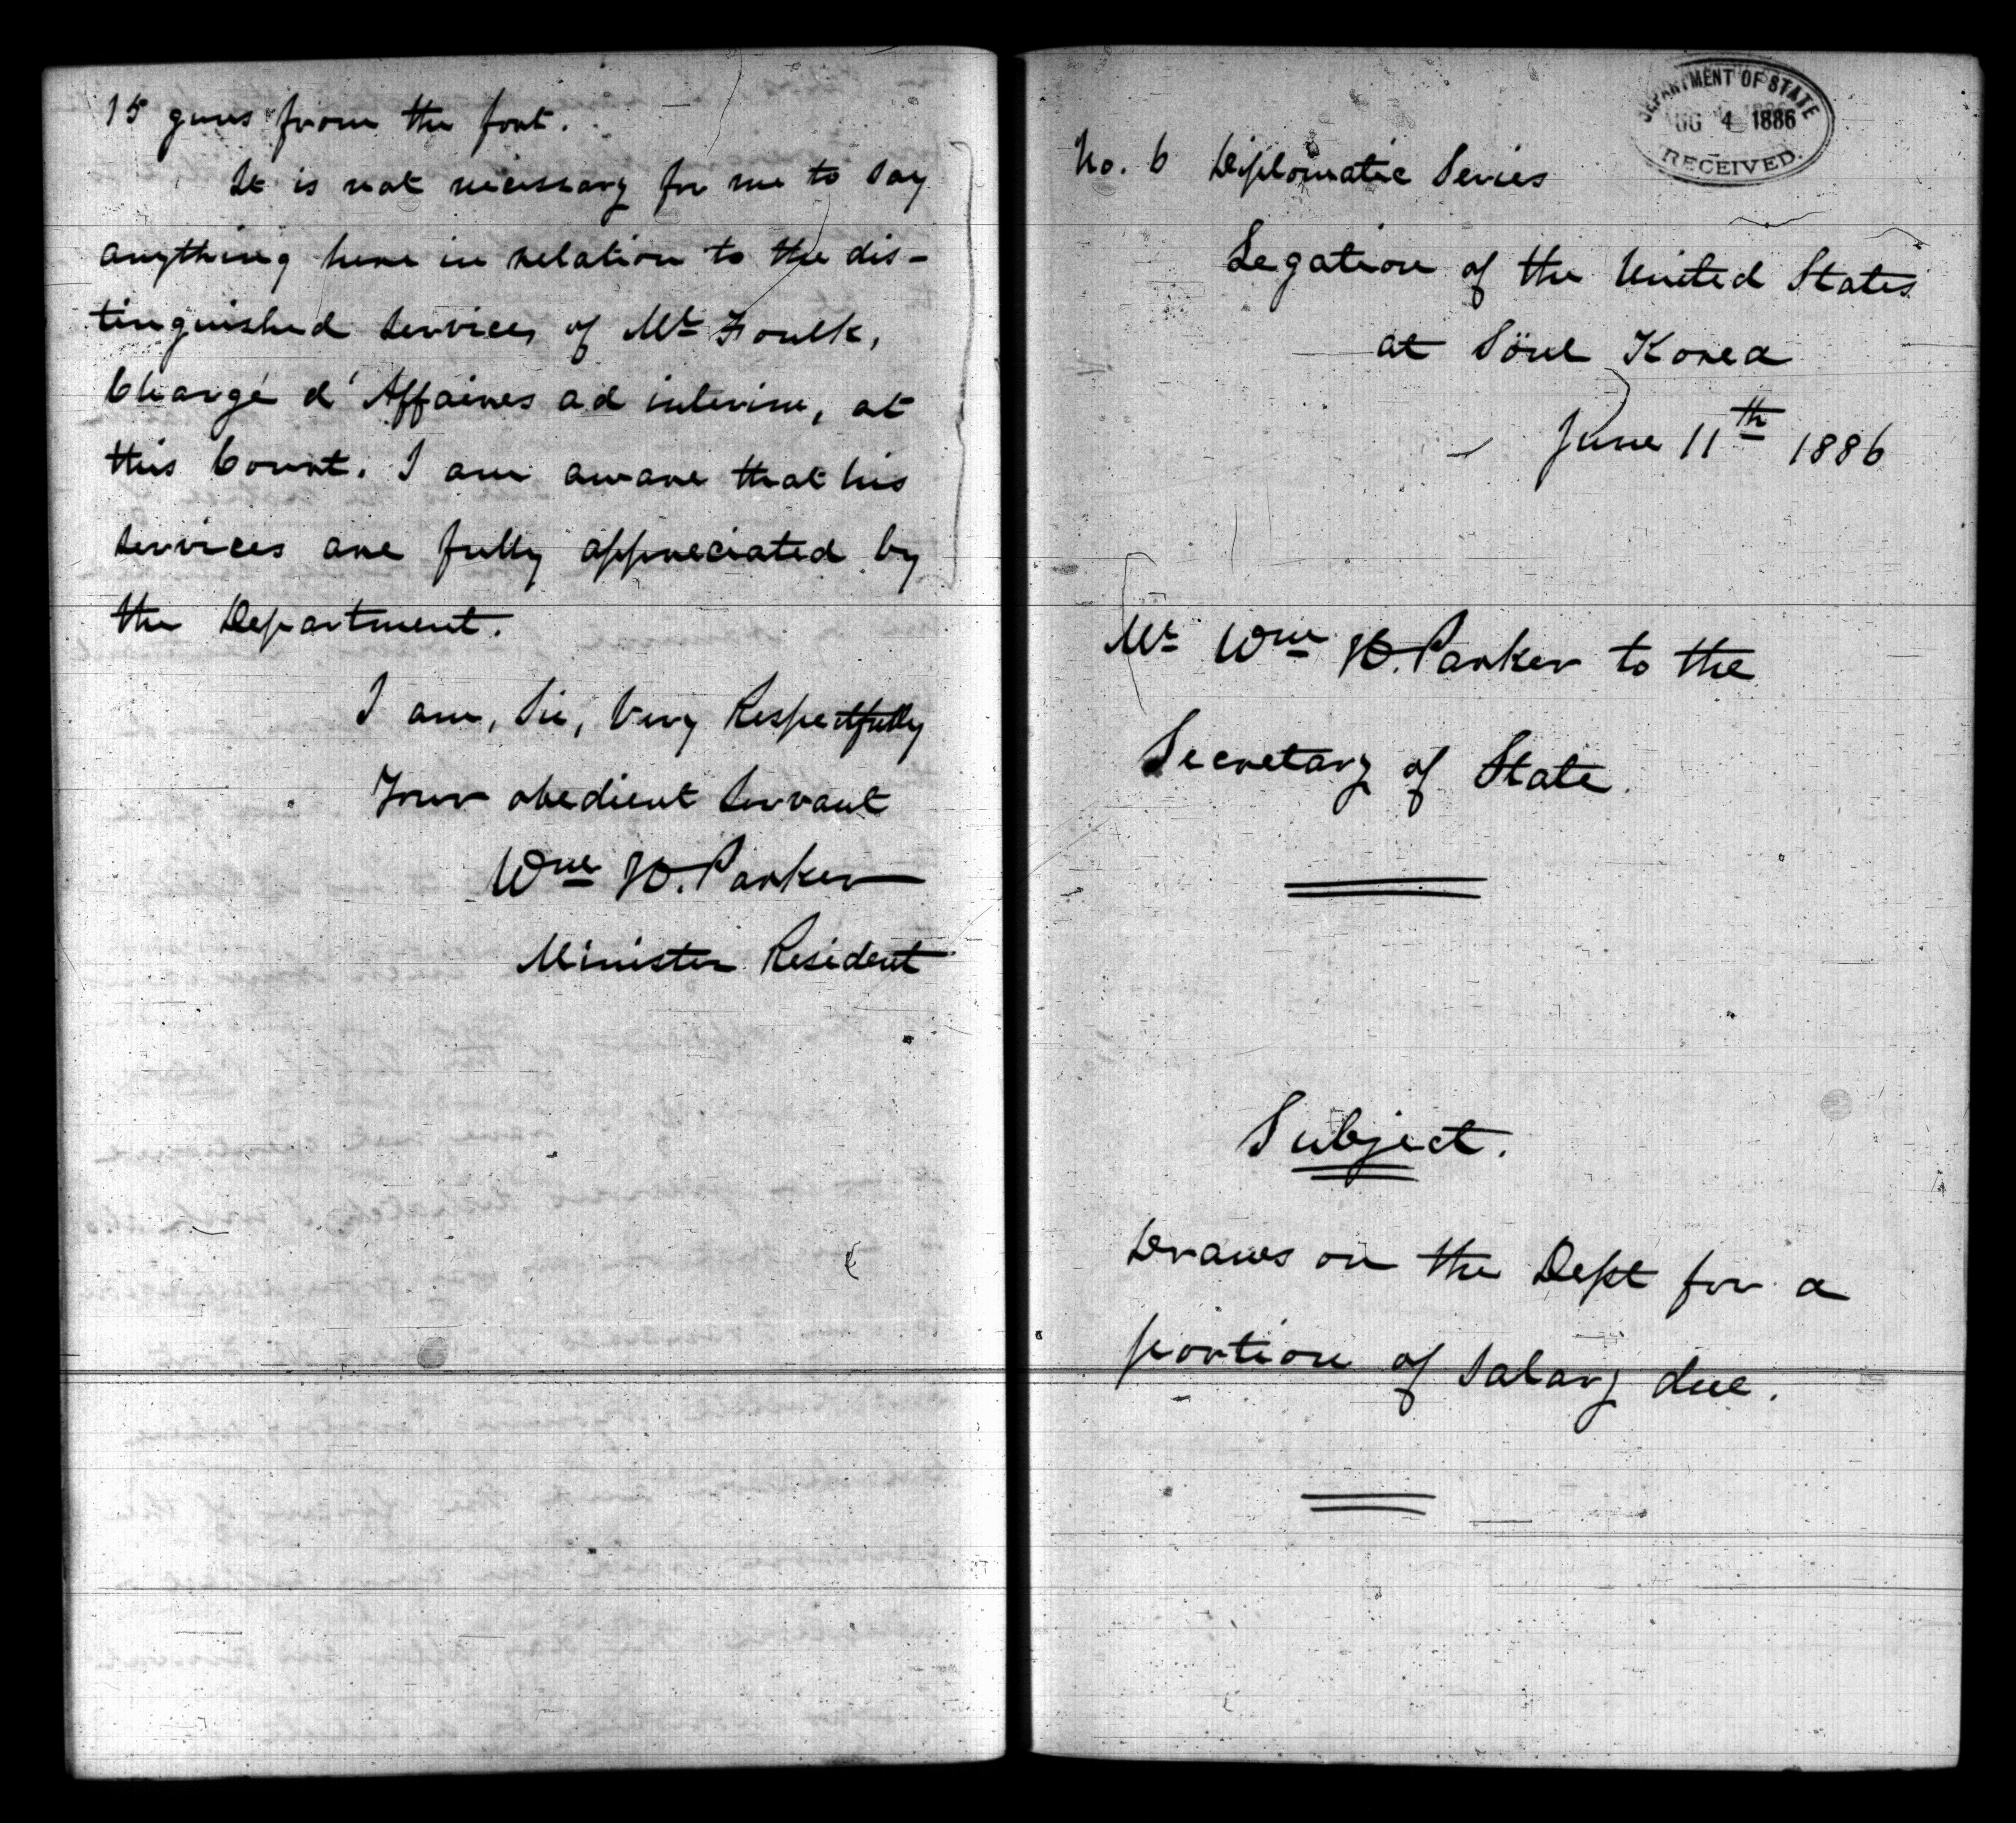 15 guns from the fort.
It is not necessary for me to say
anything here in relation to the dis-
tinguished services of Mr Foulk,
Chargé d' Affaires ad interim, at
this Court. I am aware that his
services are fully appreciated by
the Department.
I am, Sir, Very Respectfully
Your obedient Servant
Wm H. Parker
Minister Resident
DEPARTMENT OF STATE
AUG 4 1886
RECEIVED.
No. 6 Diplomatic Series
Legation of the United States
at Söul Korea
June 11th 1886
Mr Wm H. Parker to the
Secretary of State.
Subject.
Draws on the Dept for a
portion of salary due.